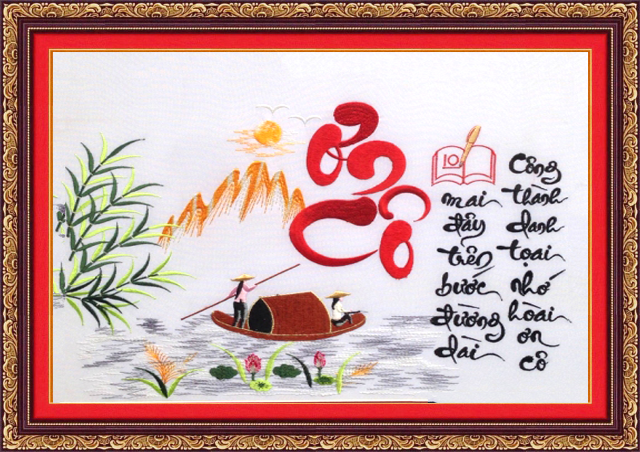 Ơn
Cô
10
mai
đây
trên
bước
đường
dài
Công
thành
danh
toại
nhớ
hoài
ơn
cô